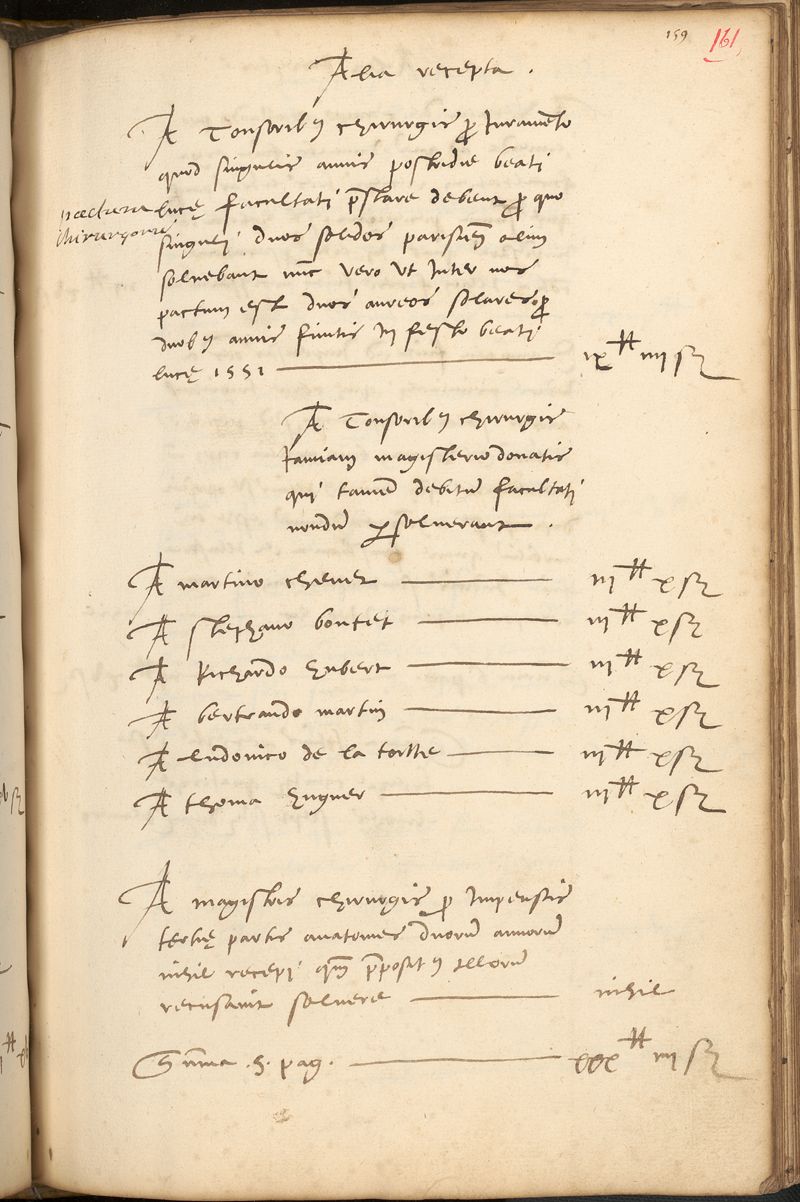 159 161
Alia recepta .
A Tonsoribus chirurgis pro Juramento
quod singulis annis postridie beati
lucę facultati prestare debent pro quo
chirurgorum
singuli duos solidos parisien olim
solvebant nunc vero ut Inter nos
pactum est duos aureos solares pro
duobus annis finitis In festo beati
lucę 1551 ix ₶ iiii s
A Tonsoribus chirurgis
Jamiam magisterio donatis
qui tamen debitum facultati
nondum persolverant .
A martino chenet iii ₶ x s
A stephano boutet iii ₶ x s
A Richardo hubert iii ₶ x s
A bertrando martin iii ₶ x s
A ludovico de la torche iii ₶ x s
A thoma huguer iii ₶ x s
A magistris chirurgis pro Impensis
tertię partis anatomes duorum annorum
nihil recepi quoniam prepositus illorum
recusavit solvere nihil
Summa .5. pag. xxx ₶ iiii s